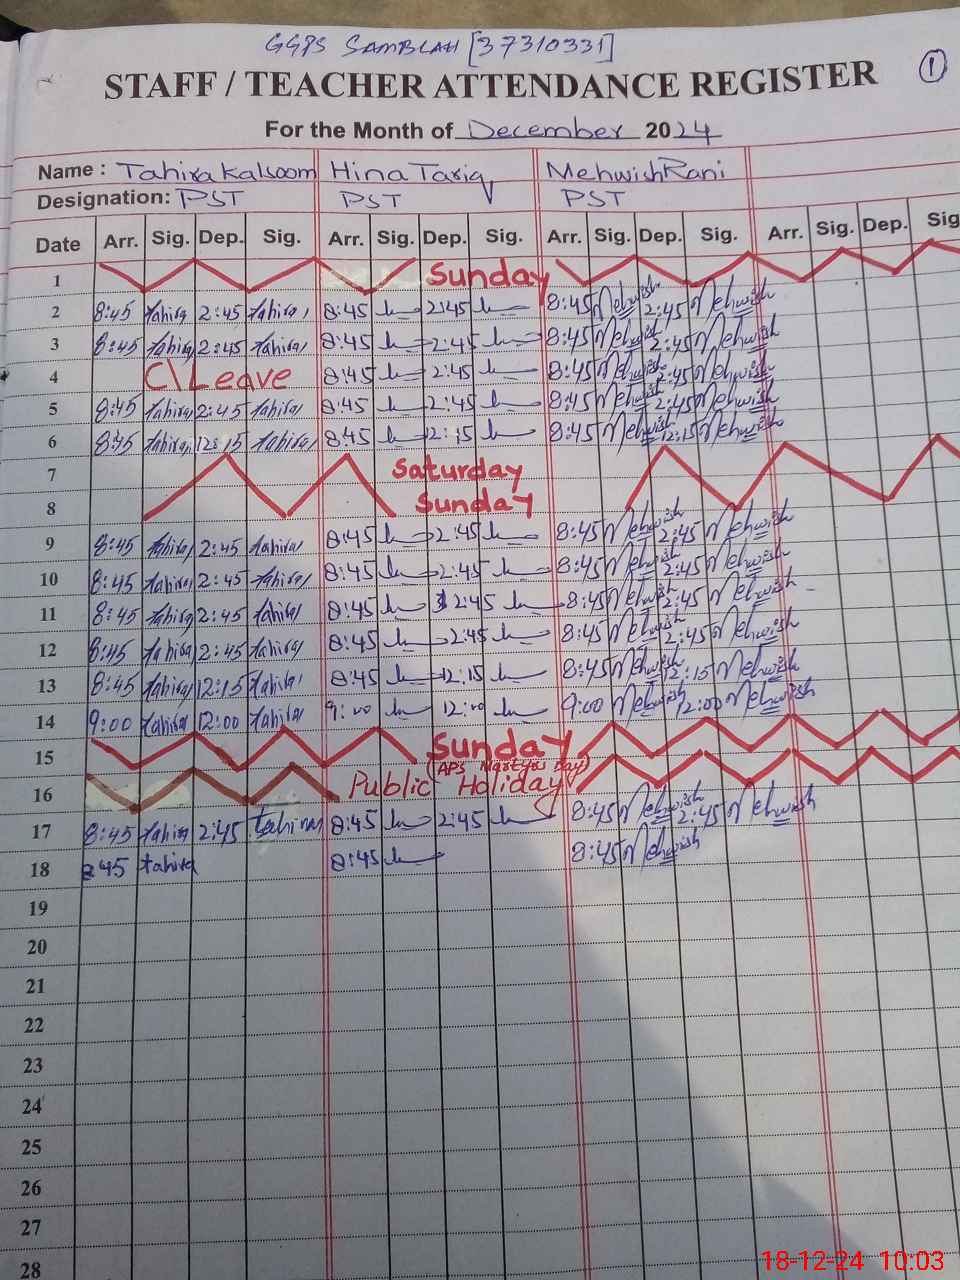 GGPS SAMBLAH [37310331]
STAFF / TEACHER ATTENDANCE REGISTER
1
For the Month of December 2024
Name : Tahira Kalsoom Hina Tariq Mehwish Rani
Designation: PST PST PST
Date Arr. Sig. Dep. Sig. Arr. Sig. Dep. Sig. Arr. Sig. Dep. Sig. Arr. Sig. Dep. Sig
1 Sunday
2 8:45 tahira 2:45 tahira 8:45 2:45 8:45 Mehwish 2:45 Mehwish
3 8:45 tahira 2:45 tahira 8:45 2:45 8:45 Mehwish 2:45 Mehwish
4 C\Leave 8:45 2:45 8:45 Mehwish 2:45 Mehwish
5 8:45 tahira 2:45 tahira 8:45 2:45 8:45 Mehwish 2:45 Mehwish
6 8:45 tahira 12:15 tahira 8:45 12:15 8:45 Mehwish 12:15 Mehwish
7 Saturday
8 Sunday
9 8:45 tahira 2:45 tahira 8:45 2:45 8:45 Mehwish 2:45 Mehwish
10 8:45 tahira 2:45 tahira 8:45 2:45 8:45 Mehwish 2:45 Mehwish
11 8:45 tahira 2:45 tahira 8:45 2:45 8:45 Mehwish 2:45 Mehwish
12 8:45 tahira 2:45 tahira 8:45 2:45 8:45 Mehwish 2:45 Mehwish
13 8:45 tahira 12:15 tahira 8:45 12:15 8:45 Mehwish 12:15 Mehwish
14 9:00 tahira 12:00 tahira 9:00 12:00 9:00 Mehwish 12:00 Mehwish
15 Sunday
(APS Martyrs Day)
16 Public Holiday
17 8:45 tahira 2:45 tahira 8:45 2:45 8:45 Mehwish 2:45 Mehwish
18 8:45 tahira 8:45 8:45 Mehwish
19
20
21
22
23
24
25
26
27
28
18-12-24 10:03